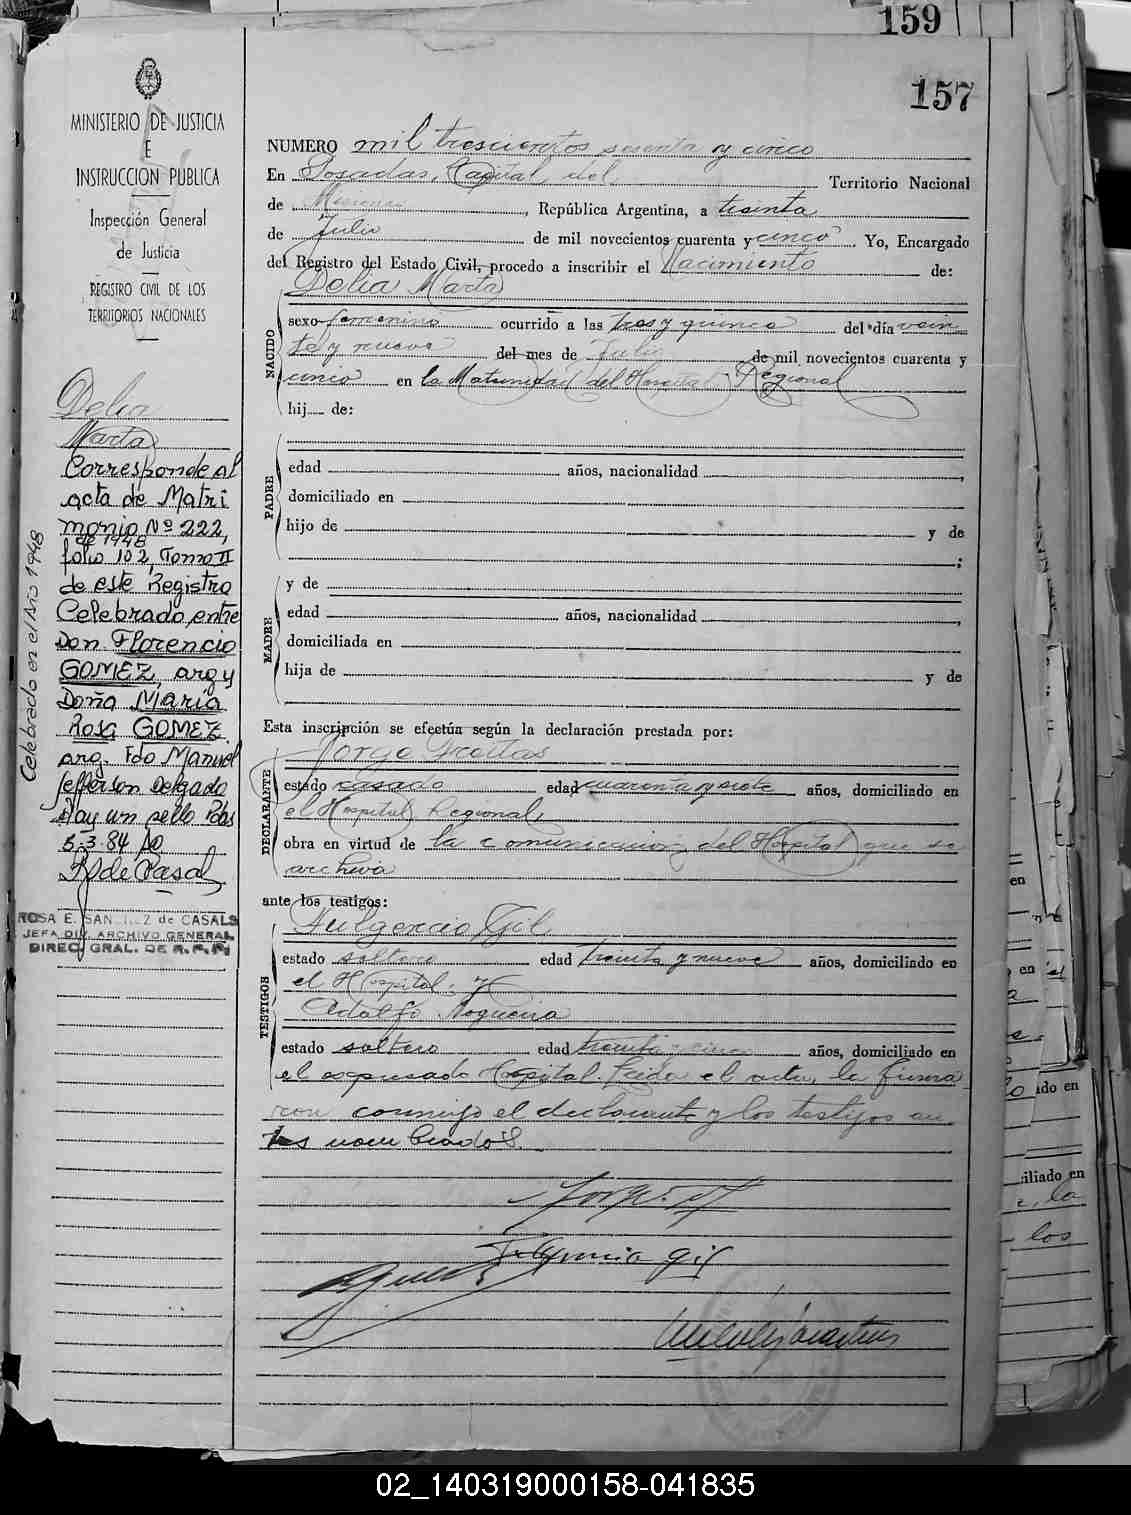 159
157
MINISTERIO DE JUSTICIA
E
INSTRUCCION PUBLICA
Inspección General
de Justicia
REGISTRO CIVIL DE LOS
TERRITORIOS NACIONALES
Delia
Marta
Corresponde al
acta de Matri
monio Nº 222,
de 1948
folio 102, Tomo II
de este Registro
Celebrado entre
Don Florencio
GOMEZ, arg y
Doña María
Rosa GOMEZ
arg. Fdo Manuel
Jefferson Delgado
Hay un sello Pdas
5-3-84
Celebrado en el Año 1948
ROSA E. SANCHEZ de CASALS
JEFA DIV. ARCHIVO GENERAL
DIREC. GRAL. DE R. P. P.
NUMERO mil trescientos sesenta y cinco
En Posadas, Capital del Territorio Nacional
de Misiones, República Argentina, a treinta
de Julio de mil novecientos cuarenta y cinco Yo, Encargado
del Registro del Estado Civil, procedo a inscribir el Nacimiento de:
Delia Marta
NACIDO
sexo femenino ocurrido a las tres y quince del día vein
te y nueve del mes de Julio de mil novecientos cuarenta y
cinco en la Maternidad del Hospital Regional
hij de:
PADRE
edad años, nacionalidad ,
domiciliado en
hijo de y de
;
MADRE
y de
edad años, nacionalidad ,
domiciliada en
hija de y de
Esta inscripción se efectúa según la declaración prestada por:
Jorge Freitas
DECLARANTE
estado casado edad cuarenta y siete años, domiciliado en
el Hospital Regional,
obra en virtud de la comunicación del Hospital que se
archiva
ante los testigos:
Fulgencio Gil
TESTIGOS
estado soltero edad treinta y nueve años, domiciliado en
el Hospital; y
Adolfo Nogueira
estado soltero edad treinta y cinco años, domiciliado en
el expresado Hospital. Leida el acta, la firma
ron conmigo el declarante y los testigos an
tes nombrados.
Fulgencio Gil
en
en
ido en
iliado en
la
los
02_140319000158-041835